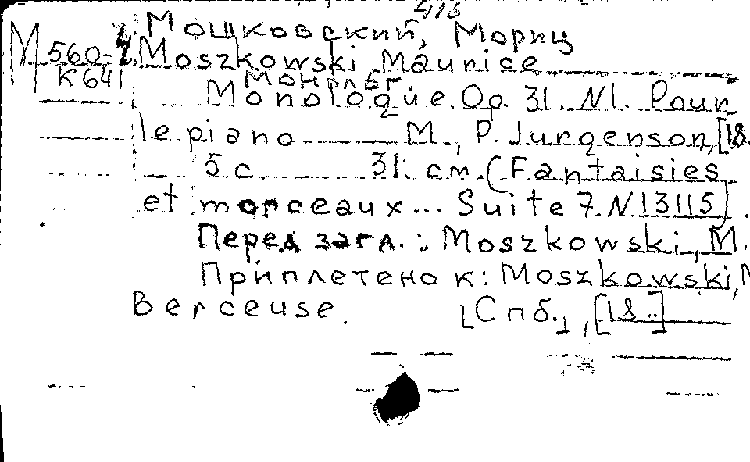 Мошковский, Мориц
М 560-7 Moszkowski Maurice
К 641 Монолог
Monologue. Op. 31. N1. Pour
le piano М., P. Jurgenson, [18..
5 с 31 см. (Fantaisies
et morceaux... Suite 7. N 13115).
Перед загл.: Moszkowski, M.
Приплетено к: Moszkowski, M
Berceuse. [Спб.], [18..]